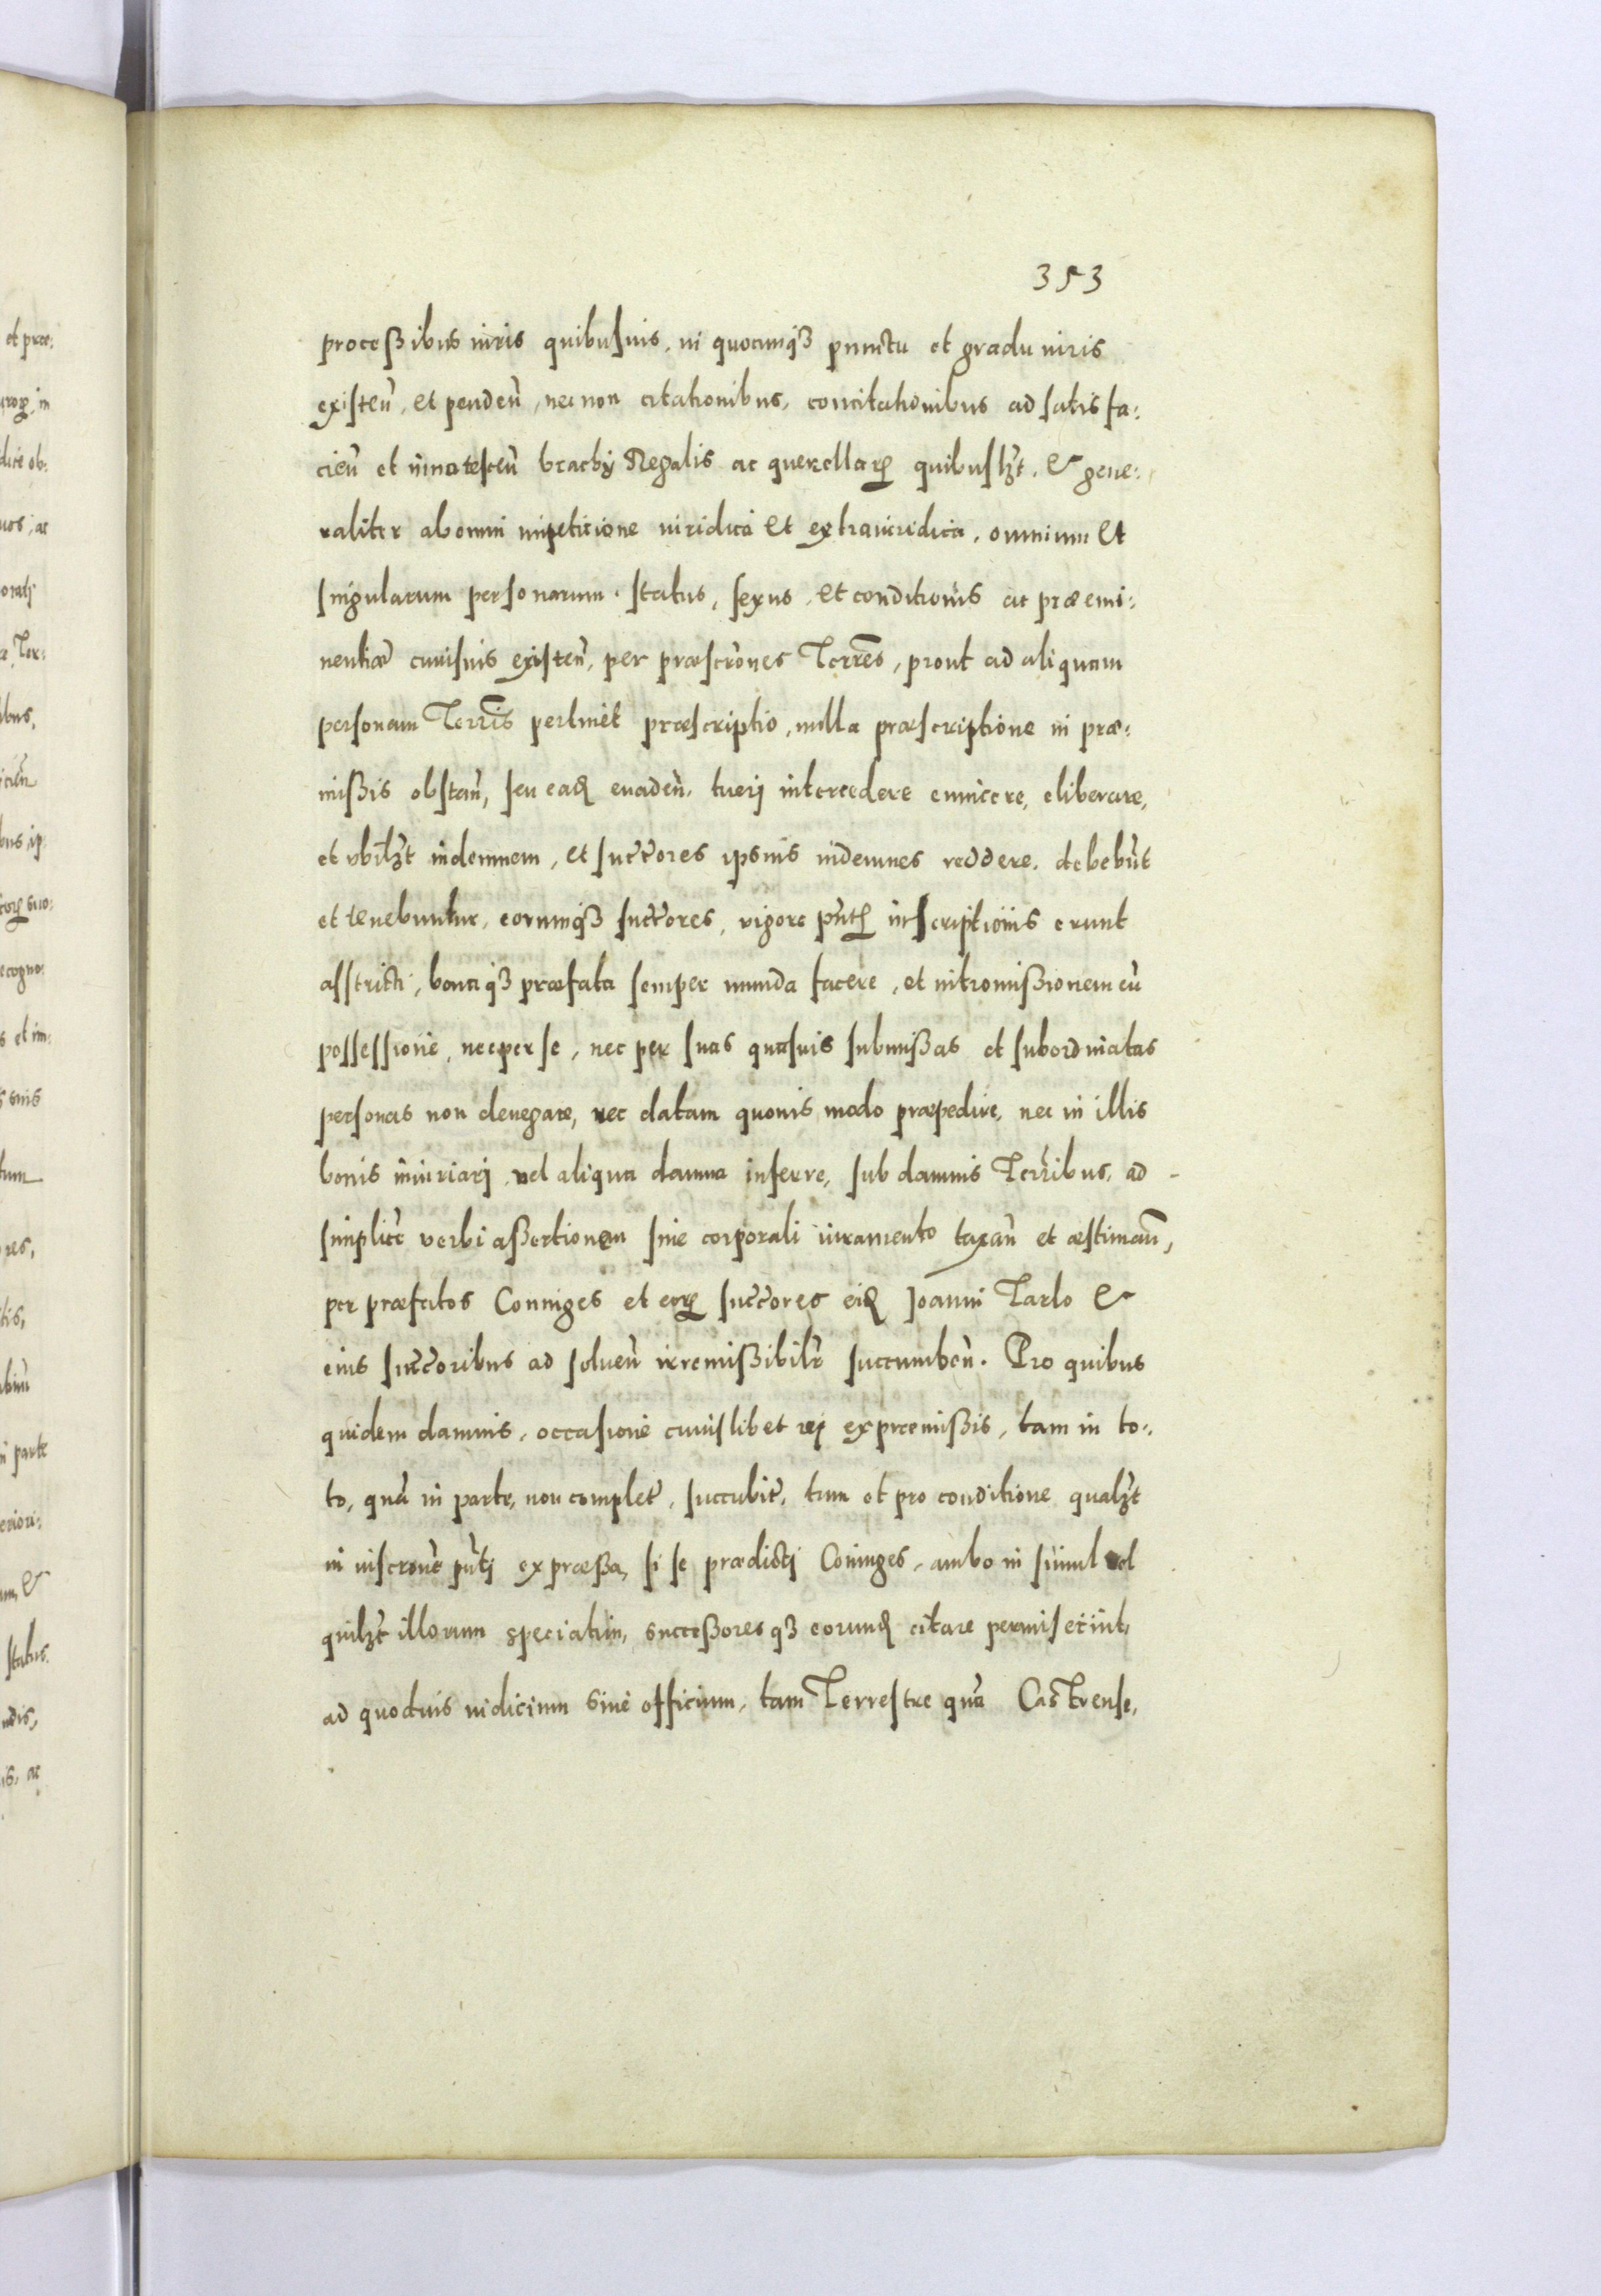 353
proceßibus iuris quibusuis, in quocunqȝ punctu et gradu iuris
existeñ, et pendeñ, nec non citationibus, concitationibus ad satisfa:
cieñ et innotesceñ brachÿ Regalis ac querellaꝝ quibuslȝt, & gene:
raliter ab omni impeticione iuridica et extraiuridica, omnium et
singularum personarum, status, sexus, et conditionis ac præemi:
nentiæ cuiusuis existeñ, per præscrōnes Terrēs, prout ad aliquam
personam Terrīs pertinet præscriptio, nulla præscriptione in præ:
mißis obstañ, seu eaꝗ euadeñ, tuerj intercedere euincere, eliberare,
et vbilȝt indemnem, et succōres ipsius indemnes reddere, debebūt
et tenebuntur, eorumqȝ succōres, vigore pñtꝭ inscriptionis erunt
asstricti, bonaqȝ præfata semper munda facere, et intromißionem cū
possessione, nec per se, nec per suas quasuis submißas et subordinatas
personas non denegare, nec datam quouis modo præpedire, nec in illis
bonis iniuriarj, vel aliqua damna inferre, sub damnis Terrībus, ad
simplicē verbi aßertionem sine corporali iuramento taxañ et æstimañ,
per præfatos Coniuges et eoꝝ succōres eiꝗ Joanni Tarlo &
eius succōribus ad solueñ irremißibilr̃ succumbeñ. Pro quibus
quidem damnis, occasione cuiuslibet rej ex præmißis, tam in to:
to, quā in parte, non complet̃, succubit̃, tum et pro conditione qualȝt
in inscrōne pñtj expræßa, si se prædictj Coniuges, ambo in simul vel
quilȝt illorum speciatim, succeßoresqȝ eorunꝗ citare permiserint,
ad quoduis iudicium siue officium, tam Terrestre quā Castrense,